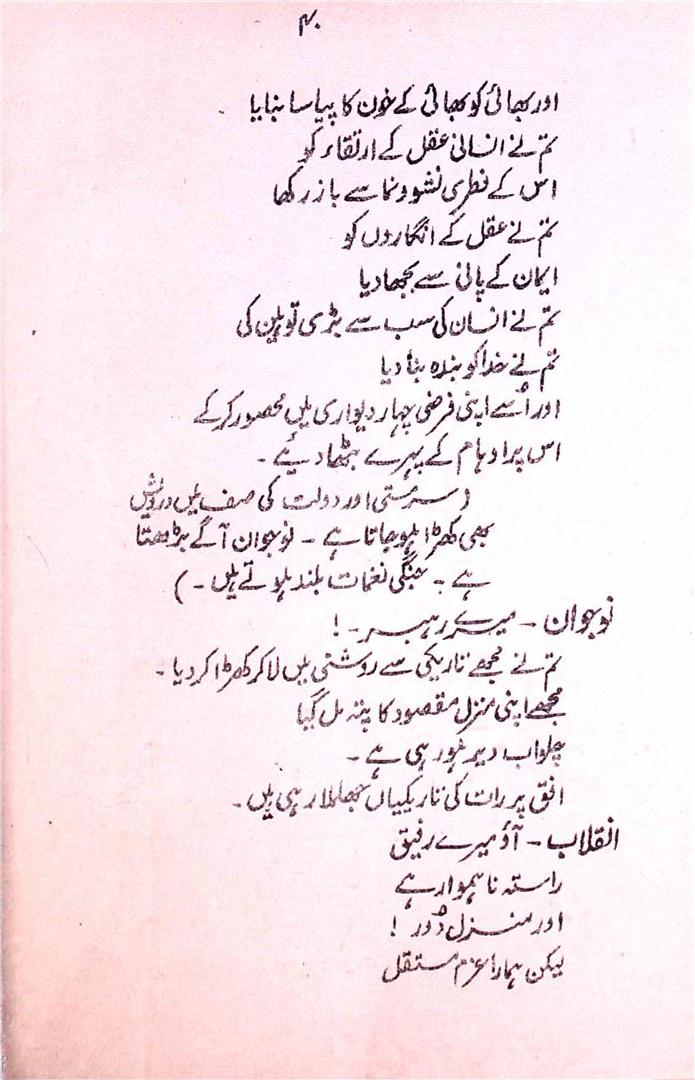 ۴۰
اور بھائی کو بھائی کے خون کا پیاسا بنایا
تم نے انسانی عقل کے ارتقاء کو
اس کے فطری نشوونما سے باز رکھا
تم نے عقل کے انگاروں کو
ایمان کے پانی سے بجھا دیا
تم نے انسان کی سب سے بڑی توہین کی
تم نے خدا کو بندہ بنا دیا
اور اُسے اپنی فرضی چہار دیواری میں محصور کر کے
اس پر اوہام کے پہرے بٹھا دیئے ۔
(سرمستی اور دولت کی صف میں درویش
بھی کھڑا ہو جاتا ہے ۔ نوجوان آگے بڑھتا
ہے ۔ جنگی نغمات بلند ہوتے ہیں ۔)
نوجوان ۔ میرے رہبر ۔ !
تم نے مجھے تاریکی سے روشنی میں لا کر کھڑا کر دیا ۔
مجھے اپنی منزل مقصود کا پتہ مل گیا
چلو اب دیر ہو رہی ہے ۔
افق پر رات کی تاریکیاں جھلملا رہی ہیں ۔
انقلاب ۔ آؤ میرے رفیق
راستہ ناہموار ہے
اور منزل دُور !
لیکن ہمارا عزم مستقل